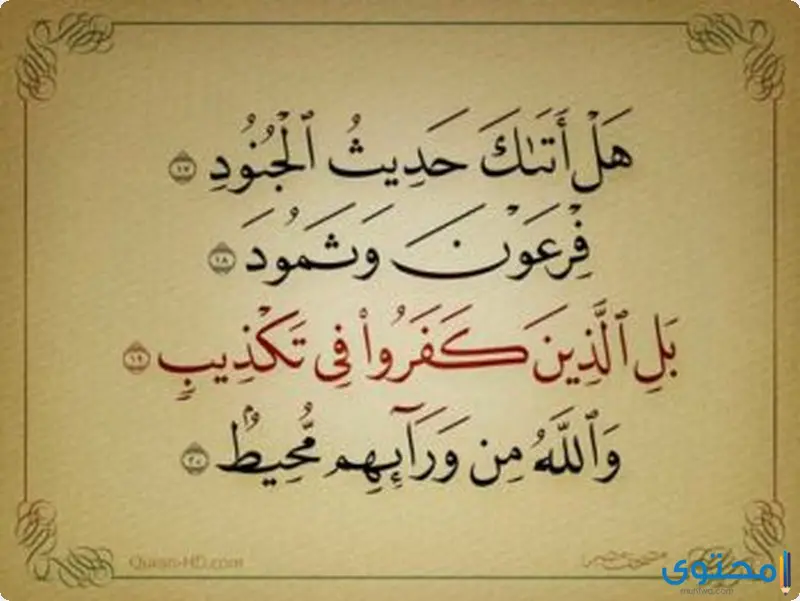 هَلْ أَتَىٰكَ حَدِيثُ ٱلْجُنُودِ ١٧
فِرْعَوْنَ وَثَمُودَ ١٨
بَلِ ٱلَّذِينَ كَفَرُوا۟ فِى تَكْذِيبٍ ١٩
وَٱللَّهُ مِن وَرَآئِهِم مُّحِيطٌۢ ٢٠
Quran-HD.com
محتوى
muhtwa.com